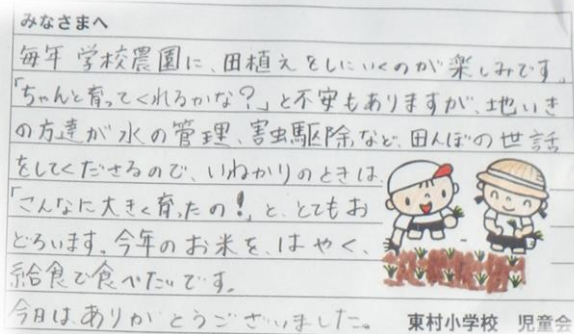 みなさまへ
毎年学校農園に、田植えをしにいくのが楽しみです。
「ちゃんと育ってくれるかな?」と不安もありますが、地いき
の方達が水の管理、害虫駆除など、田んぼの世話
をしてくださるので、いねかりのときは、
「こんなに大きく育ったの!」と、とてもお
どろいます。今年のお米を、はやく、
給食で食べたいです。
今日は、ありがとうございました。
東村小学校 児童会